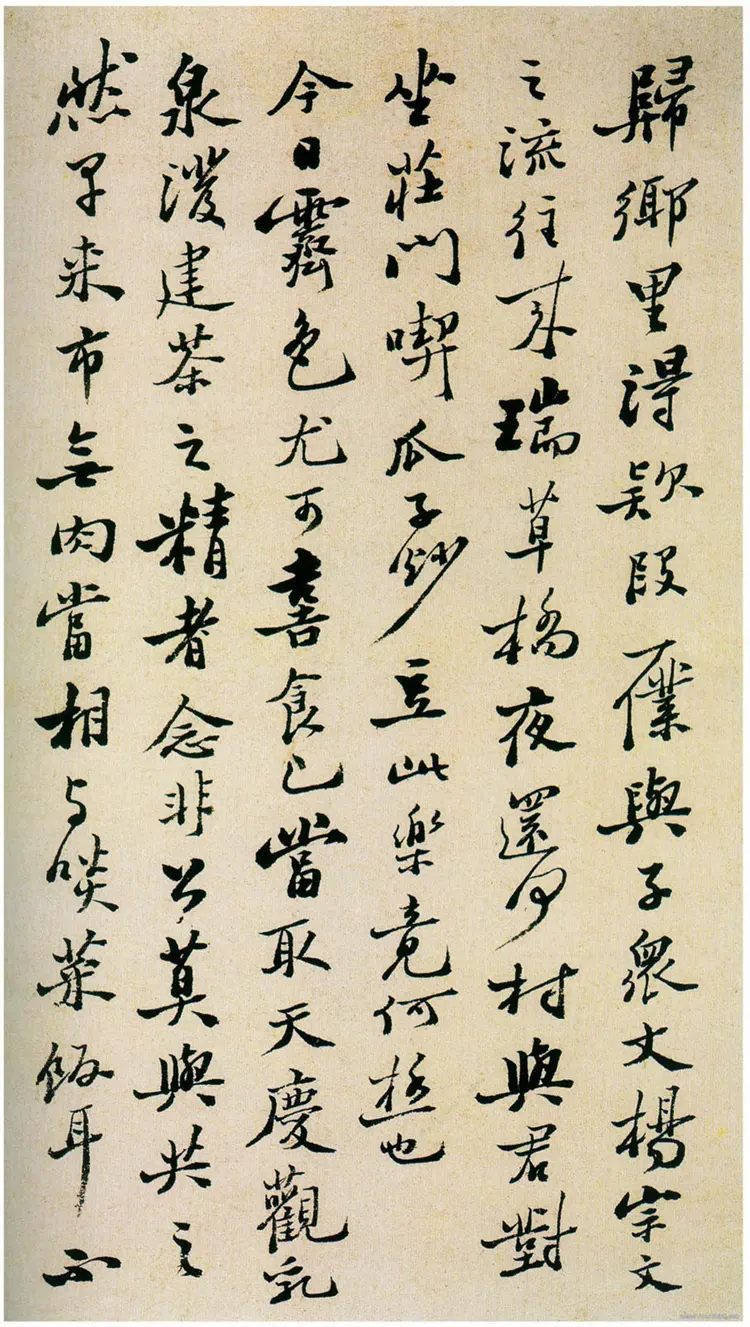 歸鄉里得款段僕與子衆丈楊宗文
之流往来瑞草橋夜還何村與君對
坐莊門喫瓜子炒豆此樂竟何極也
今日霽色尤可喜食已當取天慶觀乳
泉潑建茶之精者念非公莫與共之
然早来市無肉當相与啖菜飯耳不